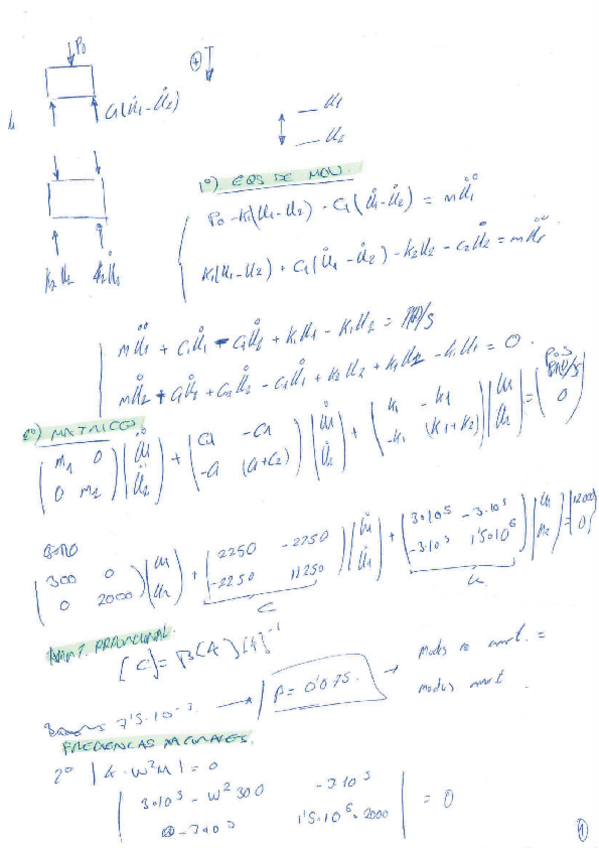 P₀
⊕
C₁(u̇₁-u̇₂)
u₁
u₂
K₂u₂
1º) EQS DE MOV.
P₀ - K₁(u₁-u₂) - C₁(u̇₁-u̇₂) = mü₁
K₁(u₁-u₂) + C₁(u̇₁-u̇₂) - K₂u₂ - C₂u̇₂ = mü₂
mü₁ + C₁u̇₁ - C₁u̇₂ + K₁u₁ - K₁u₂ =
mü₂ + C₁u̇₂ + C₂u̇₂ - C₁u̇₁ + K₂u₂ + K₁u₂ - K₁u₁ = 0.
2º) MATRICES
(m₁ 0 / 0 m₂)(ü₁ / ü₂) + (C₁ -C₁ / -C₁ (C₁+C₂))(u̇₁ / u̇₂) + (K₁ -K₁ / -K₁ (K₁+K₂))(u₁ / u₂) = ( / 0)
(300 0 / 0 2000)(u₁ / u₂) + (2250 -2250 / -2250 11250)(u̇₁ / u̇₁) + (3·10⁵ -3·10⁵ / -3·10³ 1'5·10⁶)(u₁ / u₂) = (12000 / 0)
C
K
AMORT. PROPORCIONAL.
[C] = β[K][1]⁻¹
7'5·10⁻³. → β = 0'075. → Modos no amort. =
modos amort.
FRECUENCIAS NATURALES.
2º |K-W²M| = 0
|3·10⁵ - W²300 -3·10³
-3·10³ 1'5·10⁶·2000| = 0
1